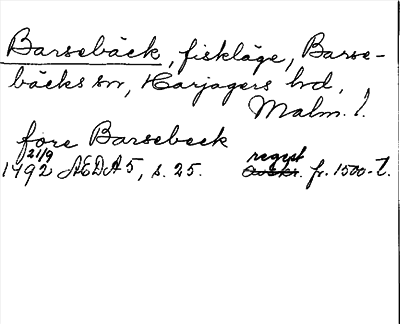 Barsebäck, fiskläge, Barse-
bäcks sn, Harjagers hd,
Malm. l.
fore Barsebeck
21/9
1492 ÆDA 5, s. 25. regist fr. 1500-t.